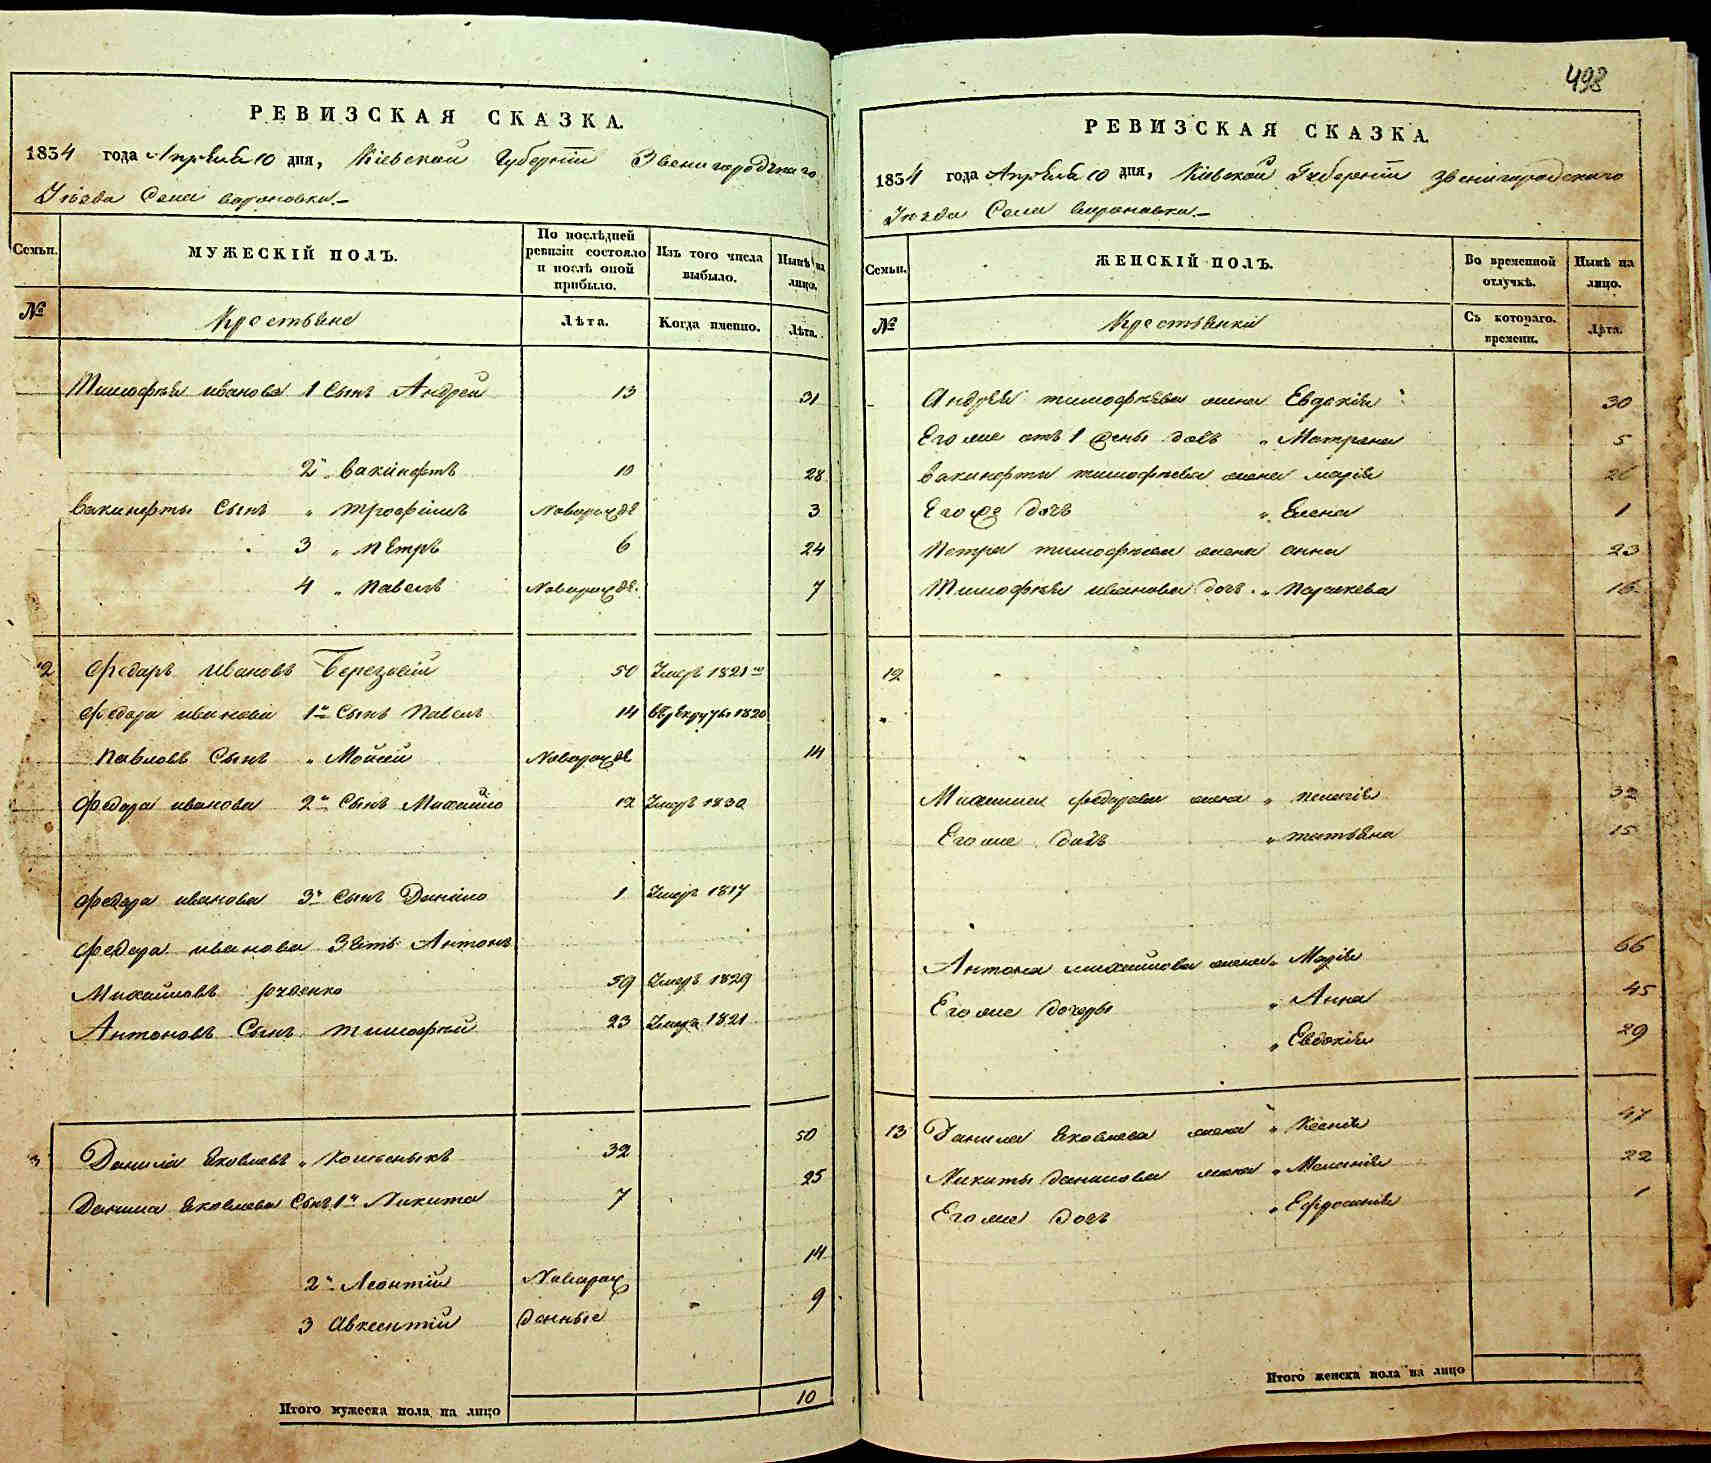 РЕВИЗСКАЯ СКАЗКА.
1834 года Апреля 10 дня, Кіевской Губерніи Звенигородскаго
Уезда Села вороновки
Семьи.
МУЖЕСКІЙ ПОЛЪ.
По послѣдней ревизіи состояло и послѣ оной прибыло.
Изъ того числа выбыло.
Нынѣ на лицо.
№
Крестьяне
Лѣта.
Когда именно.
Лѣта.
Тимофея иванова 1 Сынъ Андрей 13 31
2й „ вакинфтъ 10 28
вакинфты Сынъ „ трофимъ Новорожде 3
3 „ пЕтръ 6 24
4 „ павелъ Новорожде. 7
12 Федоръ ивановъ Березкій 50 Умеръ 1821го
Федора иванова 1й Сынъ Павелъ 14 врекруты 1820
павловъ Сынъ „ Моисей Новорожде 14
Федора иванова 2й Сынъ Михайло 12 Умеръ 1830
Федора иванова 3й Сынъ Данило 1 Умеръ 1817
Федора иванова Зять Антонъ
Михайловъ 59 Умеръ 1829
Антоновъ Сынъ тимофей 23 Умеръ 1821
13 Данило Яковлевъ „ 32 50
Данила Яковлева Сынъ 1й Никита 7 25
2й Леонтій Новорож 14
3 Авксентій данные 9
Итого мужеска пола на лицо 10
498
РЕВИЗСКАЯ СКАЗКА.
1834 года Апреля 10 дня, Кіевской Губерніи Звенигородскаго
Уезда Села вороновки
Семьи.
ЖЕНСКІЙ ПОЛЪ.
Во временной отлучкѣ.
Нынѣ на лицо.
№
Крестьянки
Съ котораго. времени.
Лѣта.
Андрея тимофеева жена Евдокія 30
Его же отъ 1 жены дочь „ Матрона 5
вакинфты тимофеева жена марія 26
Его же дочь „ Елена 1
Петра тимофеева жена анна 23
Тимофея иванова дочь „ параскева 16
12
Михаила федорова жена „ пелагія 32
Его же дочь „ татьяна 15
Антона михайлова жена „ Марія 66
Его же дочеры „ Анна 45
„ Евдокія 29
13 Данила Яковлева жена „ Ксенія 47
Никиты данилова жена „ Меланія 22
Его же дочь „ Ефросинія 1
Итого женска пола на лицо